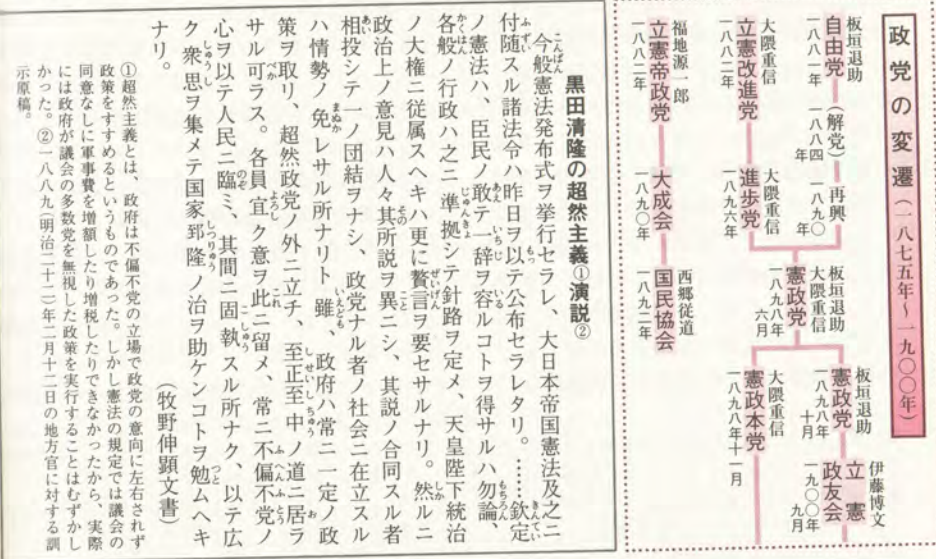 政党の変遷(一八七五年〜一九〇〇年)
板垣退助
自由党
一八八一年
(解党)
一八八四年
再興
一八九〇年
大隈重信
立憲改進党
一八八二年
大隈重信
進歩党
一八九六年
福地源一郎
立憲帝政党
一八八二年
大成会
一八九〇年
西郷従道
国民協会
一八九二年
板垣退助
大隈重信
憲政党
一八九八年
六月
板垣退助
憲政党
一八九八年
十月
大隈重信
憲政本党
一八九八年十一月
伊藤博文
立憲
政友会
一九〇〇年
九月
黒田清隆の超然主義①演説②
今般憲法発布式ヲ挙行セラレ、大日本帝国憲法及之ニ
付随スル諸法令ハ昨日ヲ以テ公布セラレタリ。……欽定
ノ憲法ハ、臣民ノ敢テ一辞ヲ容ルコトヲ得サルハ勿論、
各般ノ行政ハ之ニ準拠シテ針路ヲ定メ、天皇陛下統治
ノ大権ニ従属スヘキハ更ニ贅言ヲ要セサルナリ。然ルニ
政治上ノ意見ハ人々其所説ヲ異ニシ、其説ノ合同スル者
相投シテ一ノ団結ヲナシ、政党ナル者ノ社会ニ在立スル
ハ情勢ノ免レサル所ナリト雖、政府ハ常ニ一定ノ政
策ヲ取リ、超然政党ノ外ニ立チ、至正至中ノ道ニ居ラ
サル可ラス。各員宜ク意ヲ此ニ留メ、常ニ不偏不党ノ
心ヲ以テ人民ニ臨ミ、其間ニ固執スル所ナク、以テ広
ク衆思ヲ集メテ国家郅隆ノ治ヲ助ケンコトヲ勉ムヘキ
ナリ。
(牧野伸顕文書)
①超然主義とは、政府は不偏不党の立場で政党の意向に左右されず
政策をすすめるというものであった。しかし憲法の規定では議会の
同意なしに軍事費を増額したり増税したりできなかったから、実際
には政府が議会の多数党を無視した政策を実行することはむずかし
かった。②一八八九(明治二十二)年二月十二日の地方官に対する訓
示原稿。